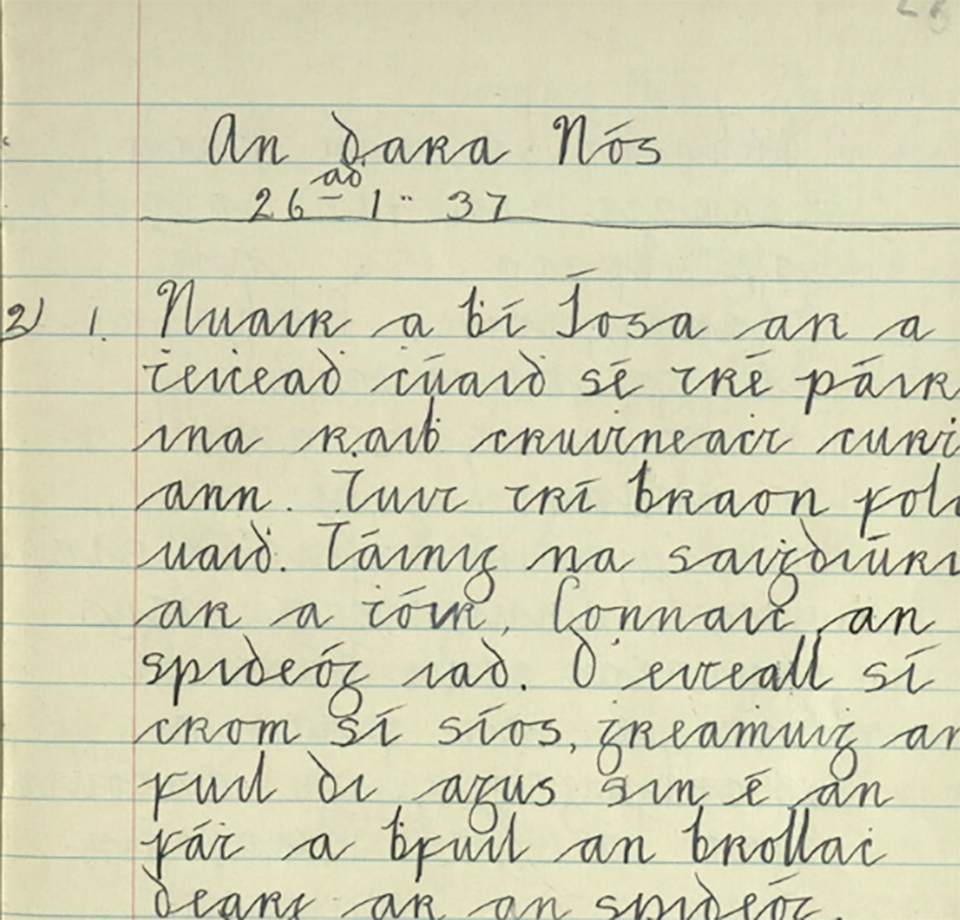 An dara Nós
26 ad 1 " 37
2) 1. Nuair a ḃí Íosa ar a
ṫeiċeaḋ ċúaiḋ sé tré páir
ina raiḃ cruiṫneaċt
ann. Tuit trí braon fol
uaiḋ. Táinig na saiġdiúr
ar a ṫóir. Connaic an
spideóg iad. D'eiteall sí
crom sí síos, greamuiġ an
fuil di agus sin é an
fáṫ a ḃfuil an brollaċ
dearg ar an spideóg.